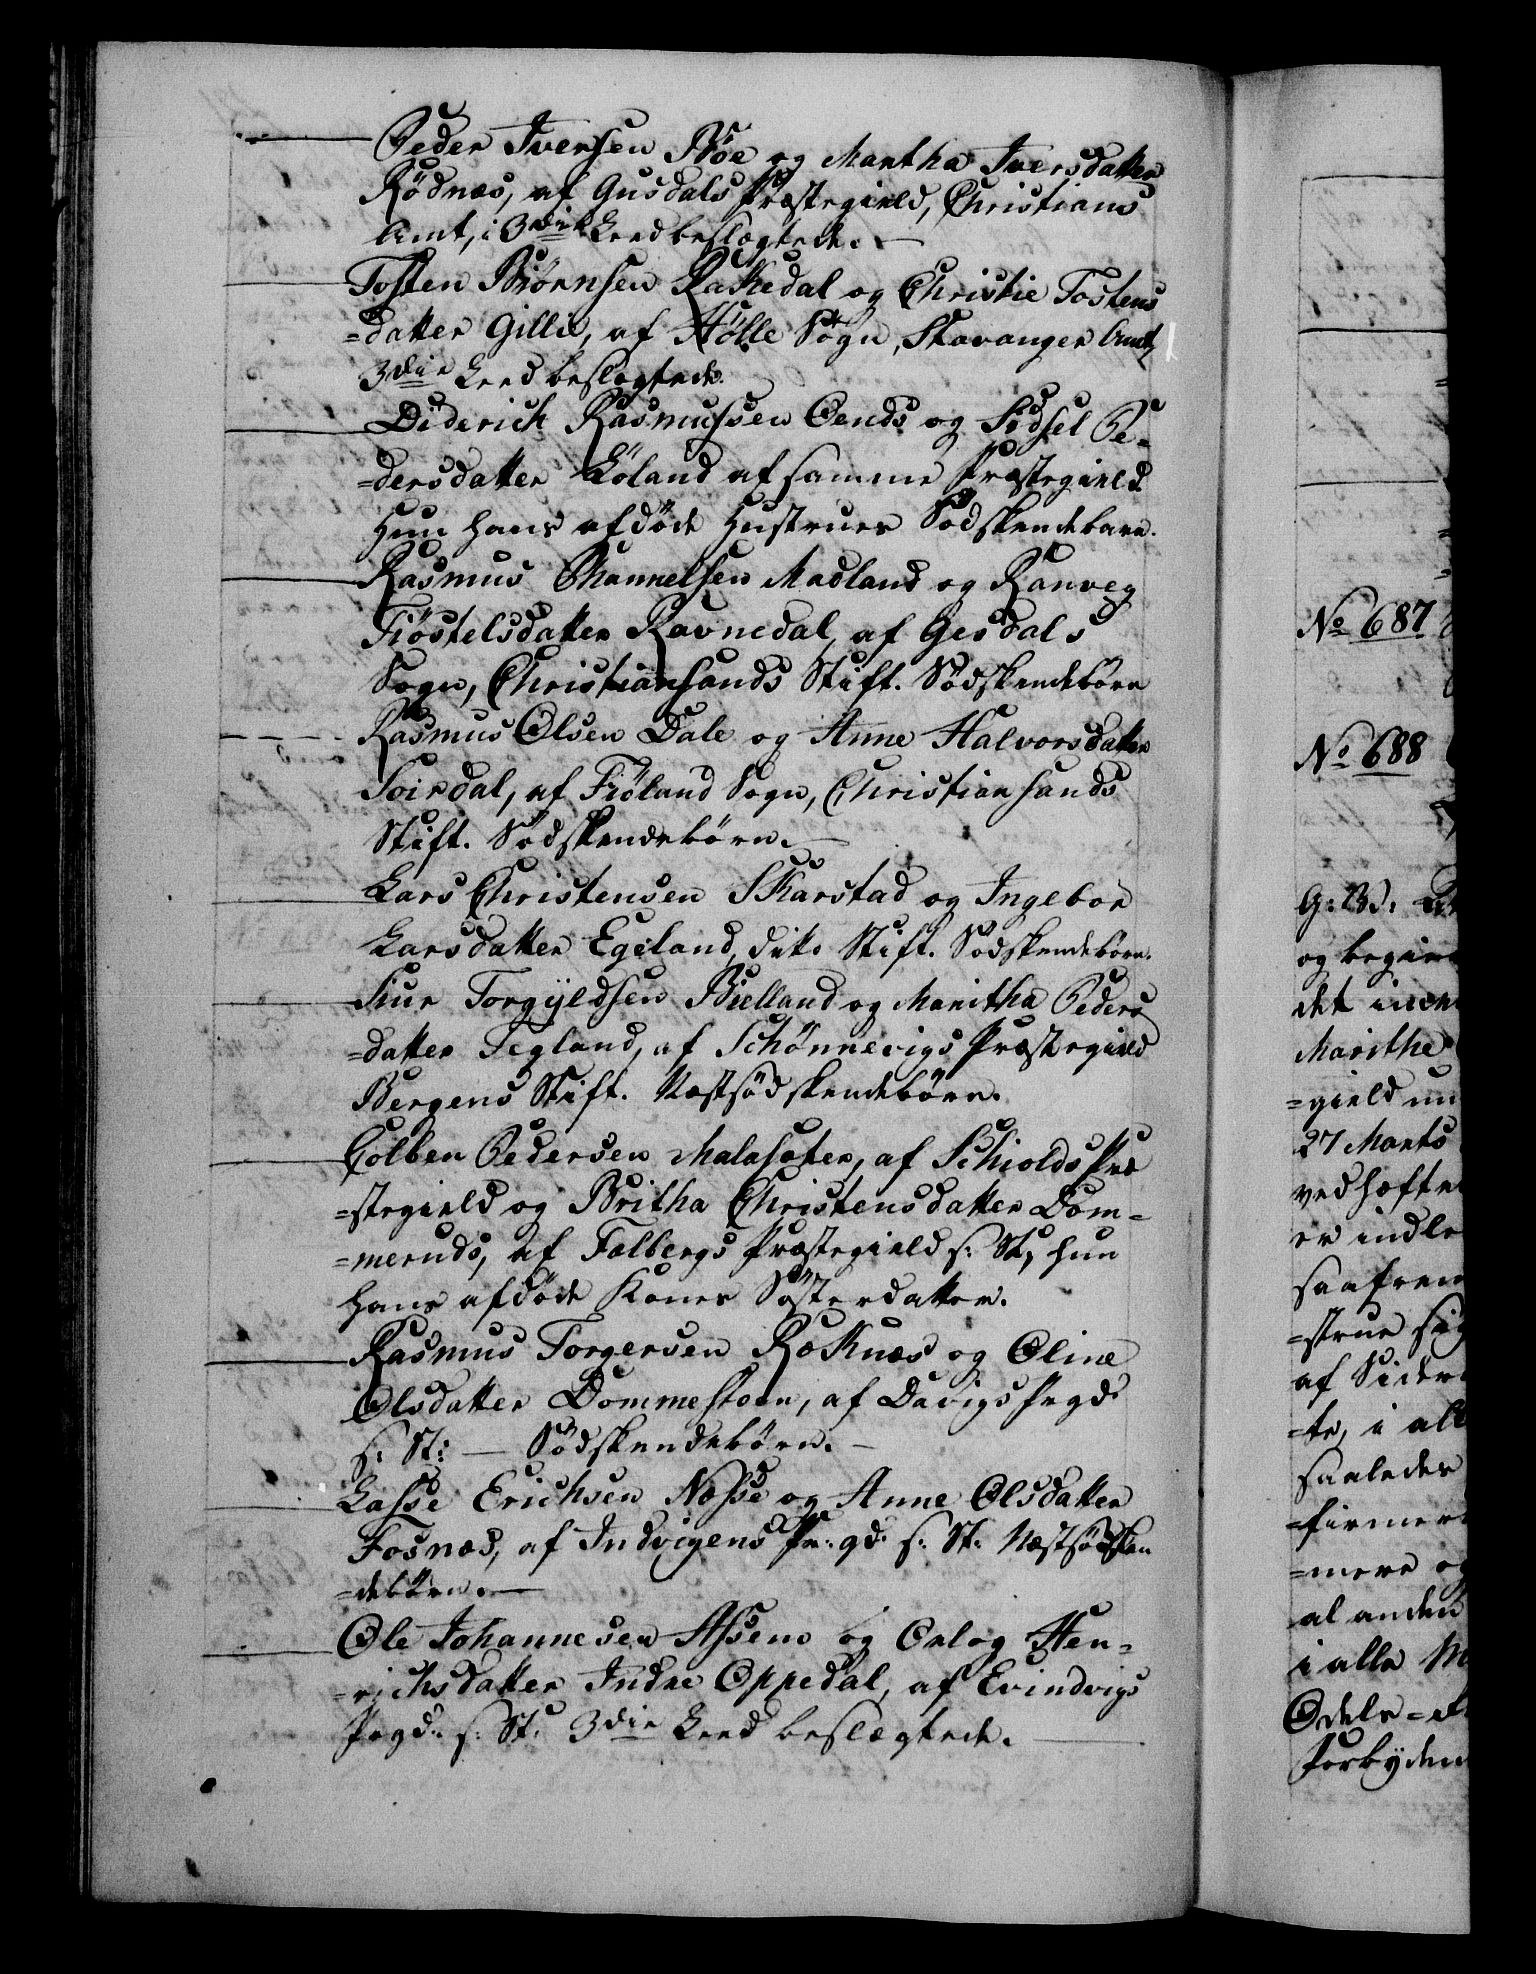 Peder Iversen Böe og Martha Iversdatter
Rödnæs, af Gusdals Præstegield, Christians
Amt, i 3die Leed beslægtede. —
Tosten Biörnsen Raskedal og Christie Tostens
=datter Gilli, af Hölle Sogn, Stavanger Amt,
3die Leed beslægtede.
Diderich Rasmussen Oends og Sidsel Pe-
=dersdatter Löland af samme Præstegield
Hun hans afdöde Hustrues Södskendebarn.
Rasmus Channelsen Madland og Ranveg
Fiöstelsdatter Ravnedal, af Gesdals
Sogn, Christiansands Stift. Södskendebörn
Rasmus Olsen Dale og Anne Halvorsdatter
Soirdal, af Fiöland Sogn, Christiansands
Stift. Södskendebörn. —
Lars Christensen Skarstad og Ingebor
Larsdatter Egeland, dito Stift. Södskendebörn.
Siur Torgyldsen Bielland og Maritha Peders
=datter Tegland, af Schönnevigs Præstegield
Bergens Stift. Næstsödskendebörn.
Colben Pedersen Malasæter, af Schiolds Præ
=stegield og Britha Christensdatter Dom=
=meruds, af Fælbergs Præstegield s: St, hun
hans afdöde Kones Södsterdatter.
Rasmus Torgersen Ræknæs og Oline
Olsdatter Dommesteen, af Davigs Prgd.
s: St: — Södskendebörn. —
Lasse Erichsen Næsse og Anne Olsdatter
Fosnæs, af Indvigens Pr: gd: s: St: Næstsödsken
=debörn. —
Ole Johannesen Assem og Orlog Hen=
=richsdatter Indre Oppedal, af Evindvigs
Prgd: s: St: 3die Leed beslægtede. —
No 687
No 688
G: B.:
og begier
det
Marithe
=gield un
27 Marts
vedhæfte
er indle
saafrem
=strue sig
af Sider
=te, i all
saaleder
=firmer
=mere og
al anden
i alle M
Odels=
Forbyden